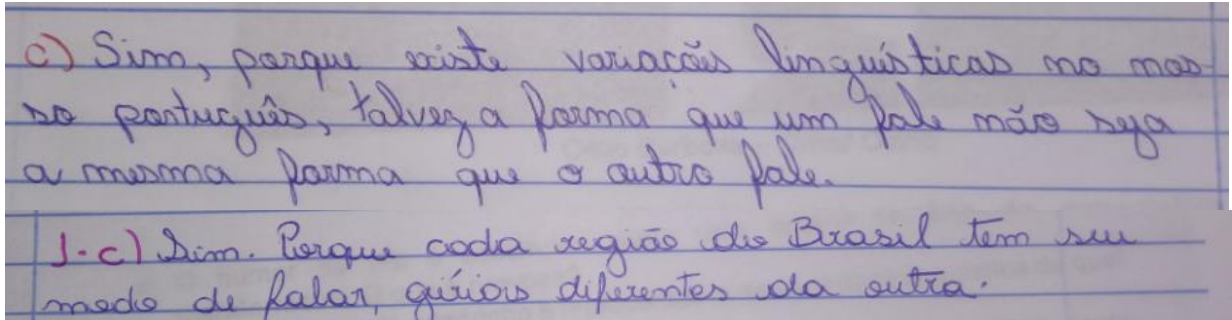 c) Sim, porque existe variações linguísticas no nos-
so português, talvez a forma que um fale não seja
a mesma forma que o outro fale.
1-c) Sim. Porque cada região do Brasil tem seu
modo de falar, gírias diferentes da outra.